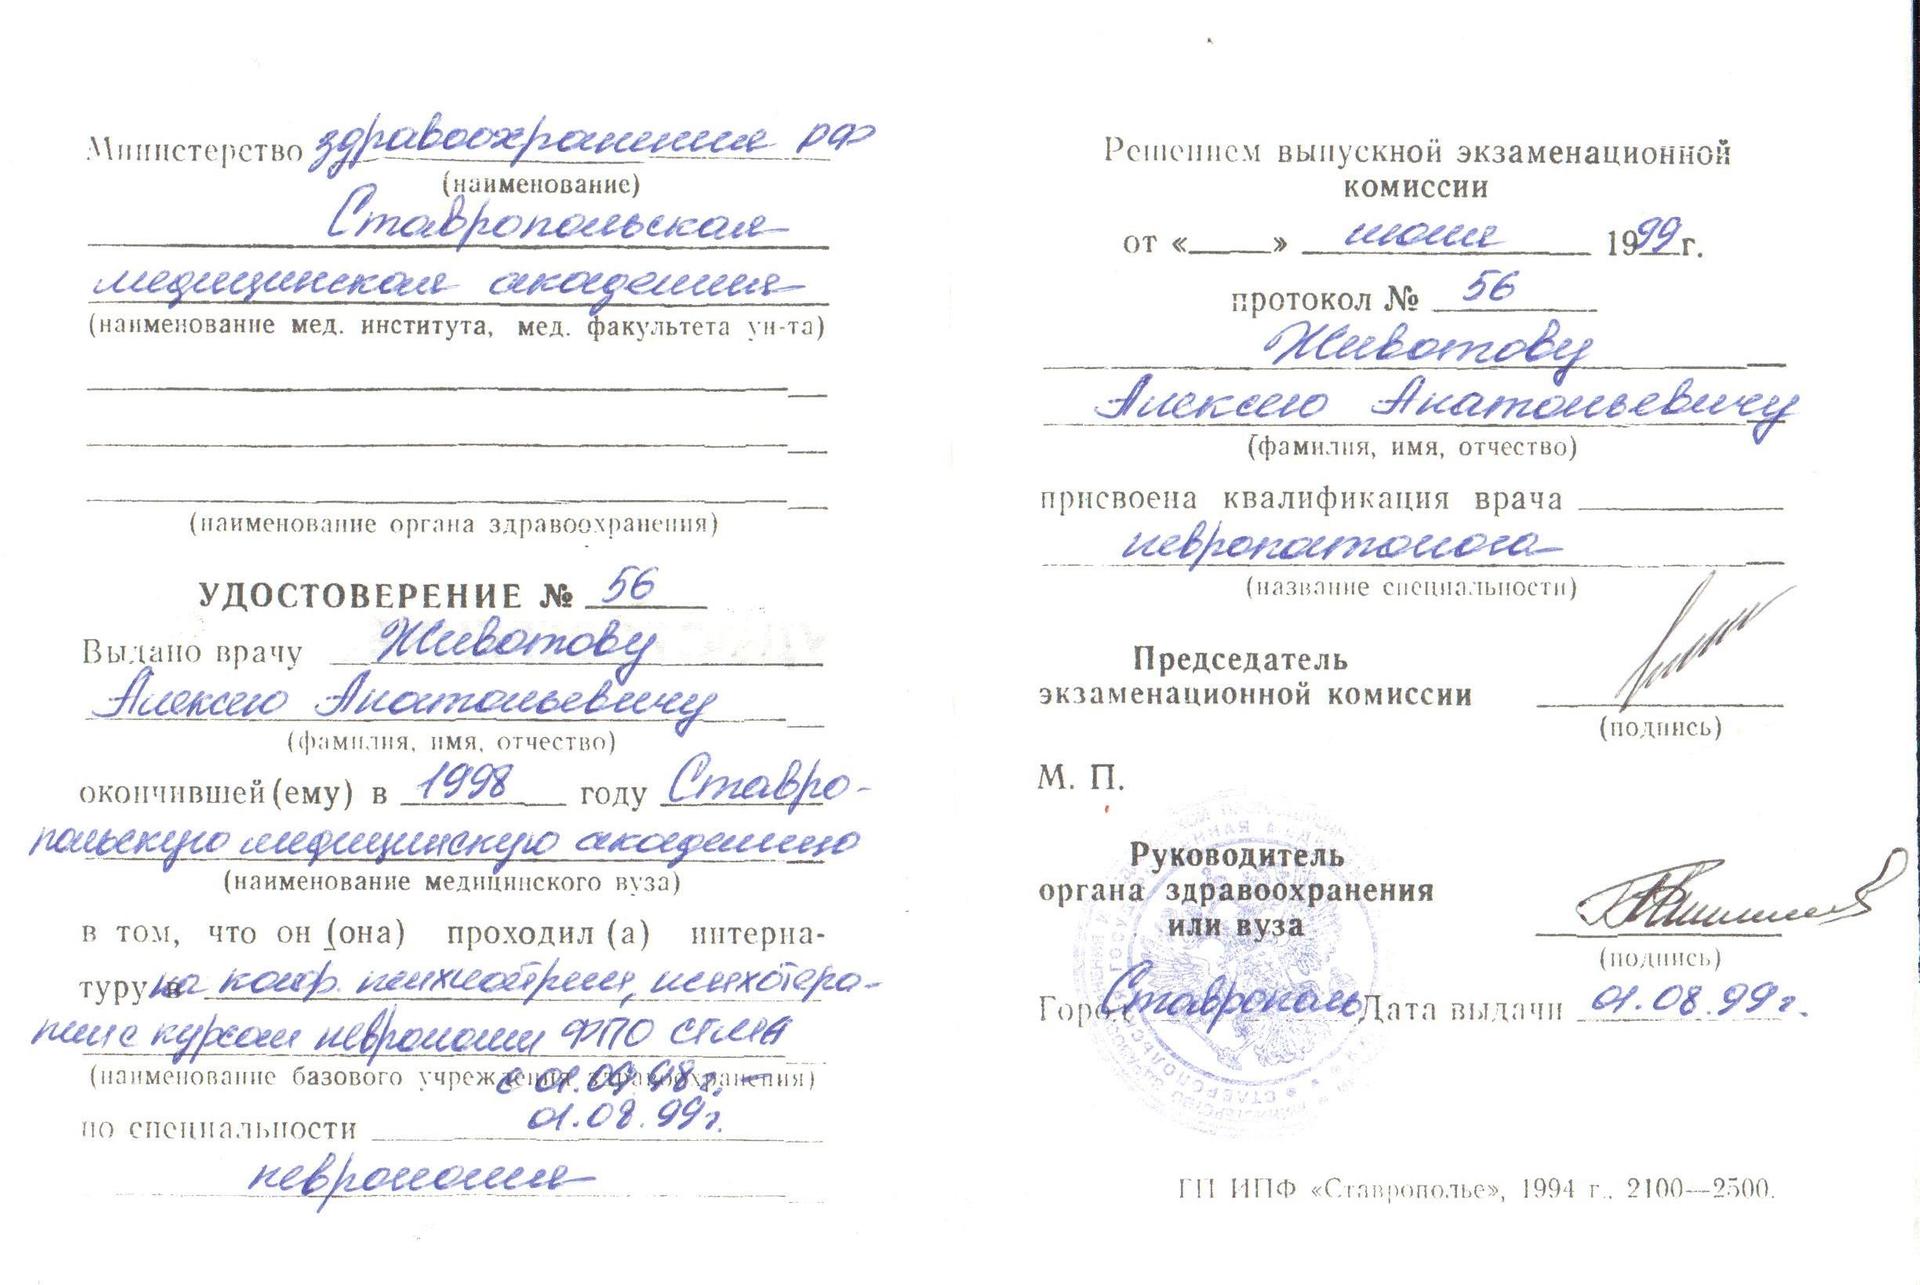 Министерство здравоохранения РФ
(наименование)
Ставропольская
медицинская академия
(наименование мед. института, мед. факультета ун-та)
(наименование органа здравоохранения)
УДОСТОВЕРЕНИЕ № 56
Выдано врачу Животову
Алексею Анатольевичу
(фамилия, имя, отчество)
окончившей(ему) в 1998 году Ставро-
польскую медицинскую академию
(наименование медицинского вуза)
в том, что он (она) проходил (а) интерна-
туру на каф. психиатрии, психотера-
пии с курсом неврологии ФПО СГМА
(наименование базового учреждения здравоохранения)
с 01.09.98г. –
по специальности 01.08.99г.
неврология
Решением выпускной экзаменационной
комиссии
от « » июня 1999г.
протокол № 56
Животову
Алексею Анатольевичу
(фамилия, имя, отчество)
присвоена квалификация врача
невропатолога
(название специальности)
Председатель
экзаменационной комиссии
(подпись)
М. П.
Руководитель
органа здравоохранения
или вуза
(подпись)
Город Ставрополь Дата выдачи 01.08.99г.
ГП ИПФ «Ставрополье», 1994 г., 2100—2500.